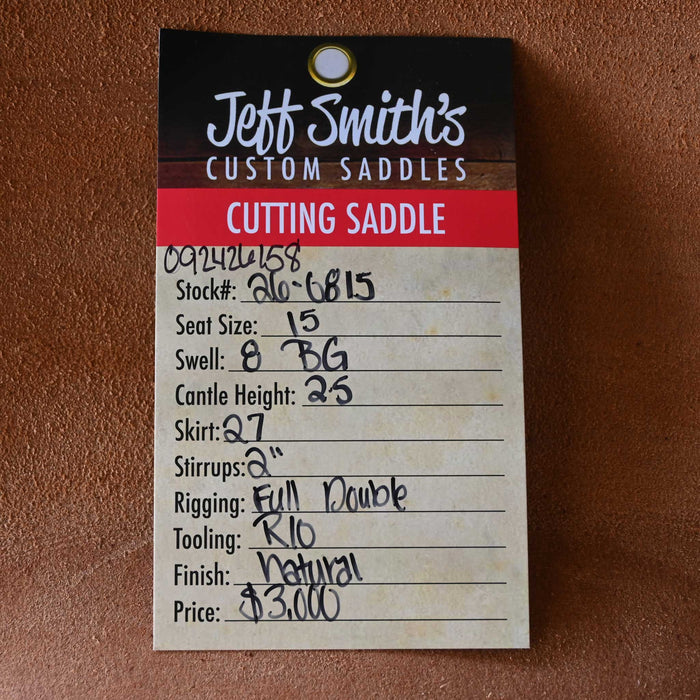 Jeff Smith's
CUSTOM SADDLES
CUTTING SADDLE
092426158
Stock#: 26-6815
Seat Size: 15
Swell: 8 BG
Cantle Height: 2.5
Skirt: 27
Stirrups: 2"
Rigging: Full Double
Tooling: R10
Finish: Natural
Price: $3,000